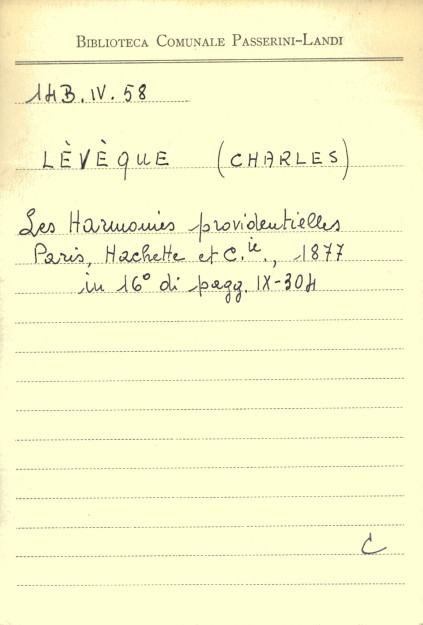 BIBLIOTECA COMUNALE PASSERINI-LANDI
14B.IV.58
LÈVÈQUE (CHARLES)
Les Harmonies providentielles
Paris, Hachette et C.ie., 1877
in 16° di pagg. IX-304
C